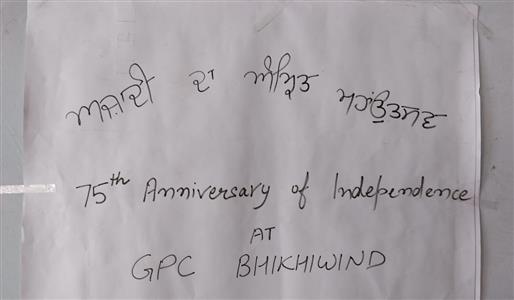 ਅਜ਼ਾਦੀ ਦਾ ਅੰਮ੍ਰਿਤ ਮਹਾਂਉਤਸਵ
75th Anniversary of Independence
AT
GPC BHIKHIWIND